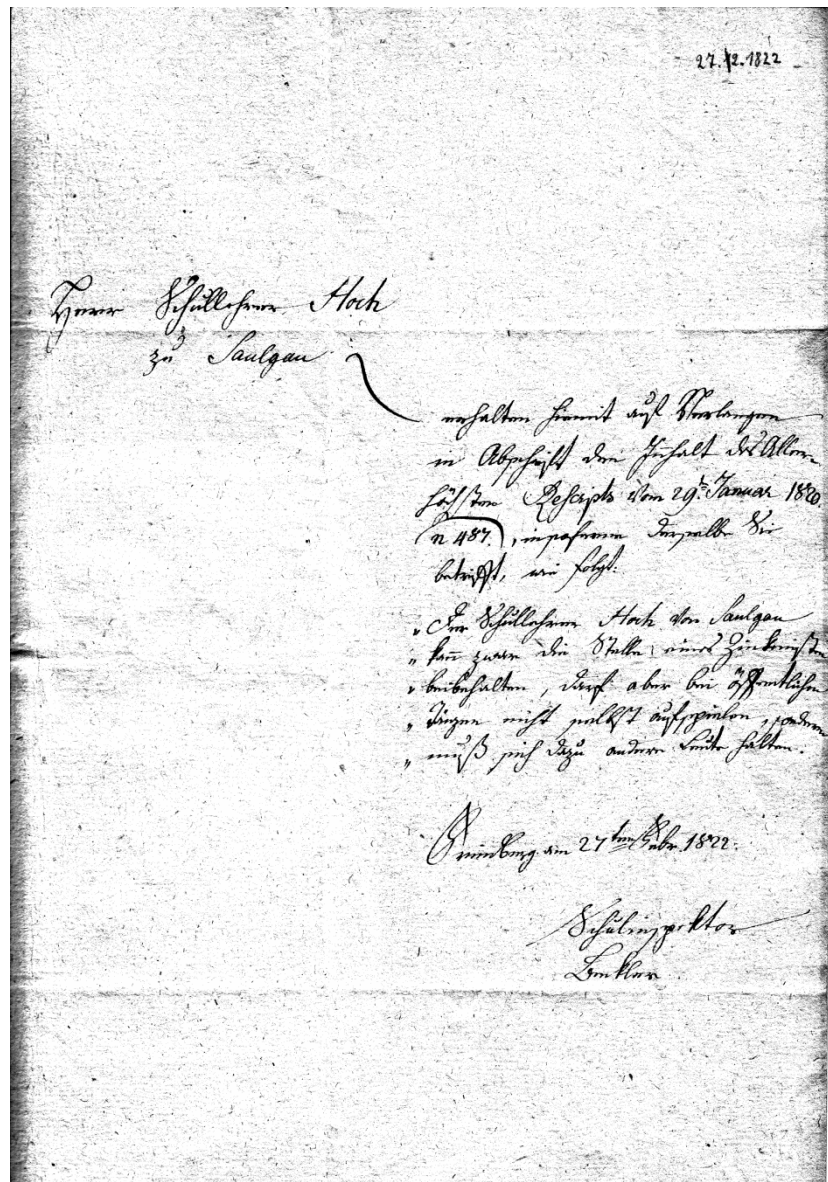 27.12.1822
Herr Schullehrer Hoch
zu Saulgau
erhalten hiemit auf Verlangen
in Abschrift den Inhalt des Aller-
höchsten Rescripts vom 29t. Januar 1820.
n 487., insoferne derselbe Sie
betrifft, wie folgt:
„Der Schullehrer Hoch von Saulgau
„kann zwar die Stelle eines Zinkenisten
„beibehalten, darf aber bei öffentlichen
„Tänzen nicht selbst aufspielen, sondern
„muß sich dazu andere Leute halten.
am 27ten 1822.
Schulinspektor